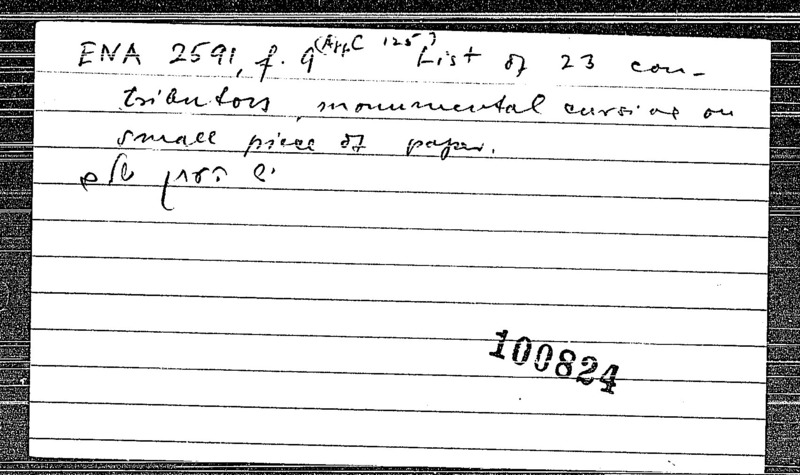 ENA 2591, f. 9 (App C 125) List of 23 con-
tributors, monumental cursive on
small piece of paper.
100824